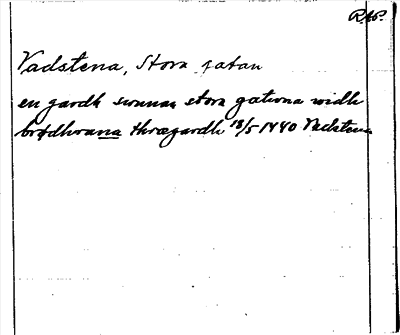 RAP.
Vadstena, Stora gatan
en gardh sunnan stora gatwna widh
brødhranna thrægardh 18/5 1440 Vadstena